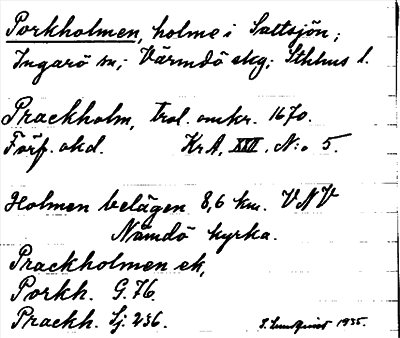 Porkholmen, holme i Saltsjön;
Ingarö sn; Värmdö skg; Sthlms l.
Prackholm, Trol. omkr. 1670.
Förf. okd. KrA, XVII, N:o 5.
Holmen belägen 8,6 km. VNV
Nämdö kyrka.
Prackholmen ek,
Porkh. G. 76.
Prackh. Sj. 236.
S. Lundquist 1935.